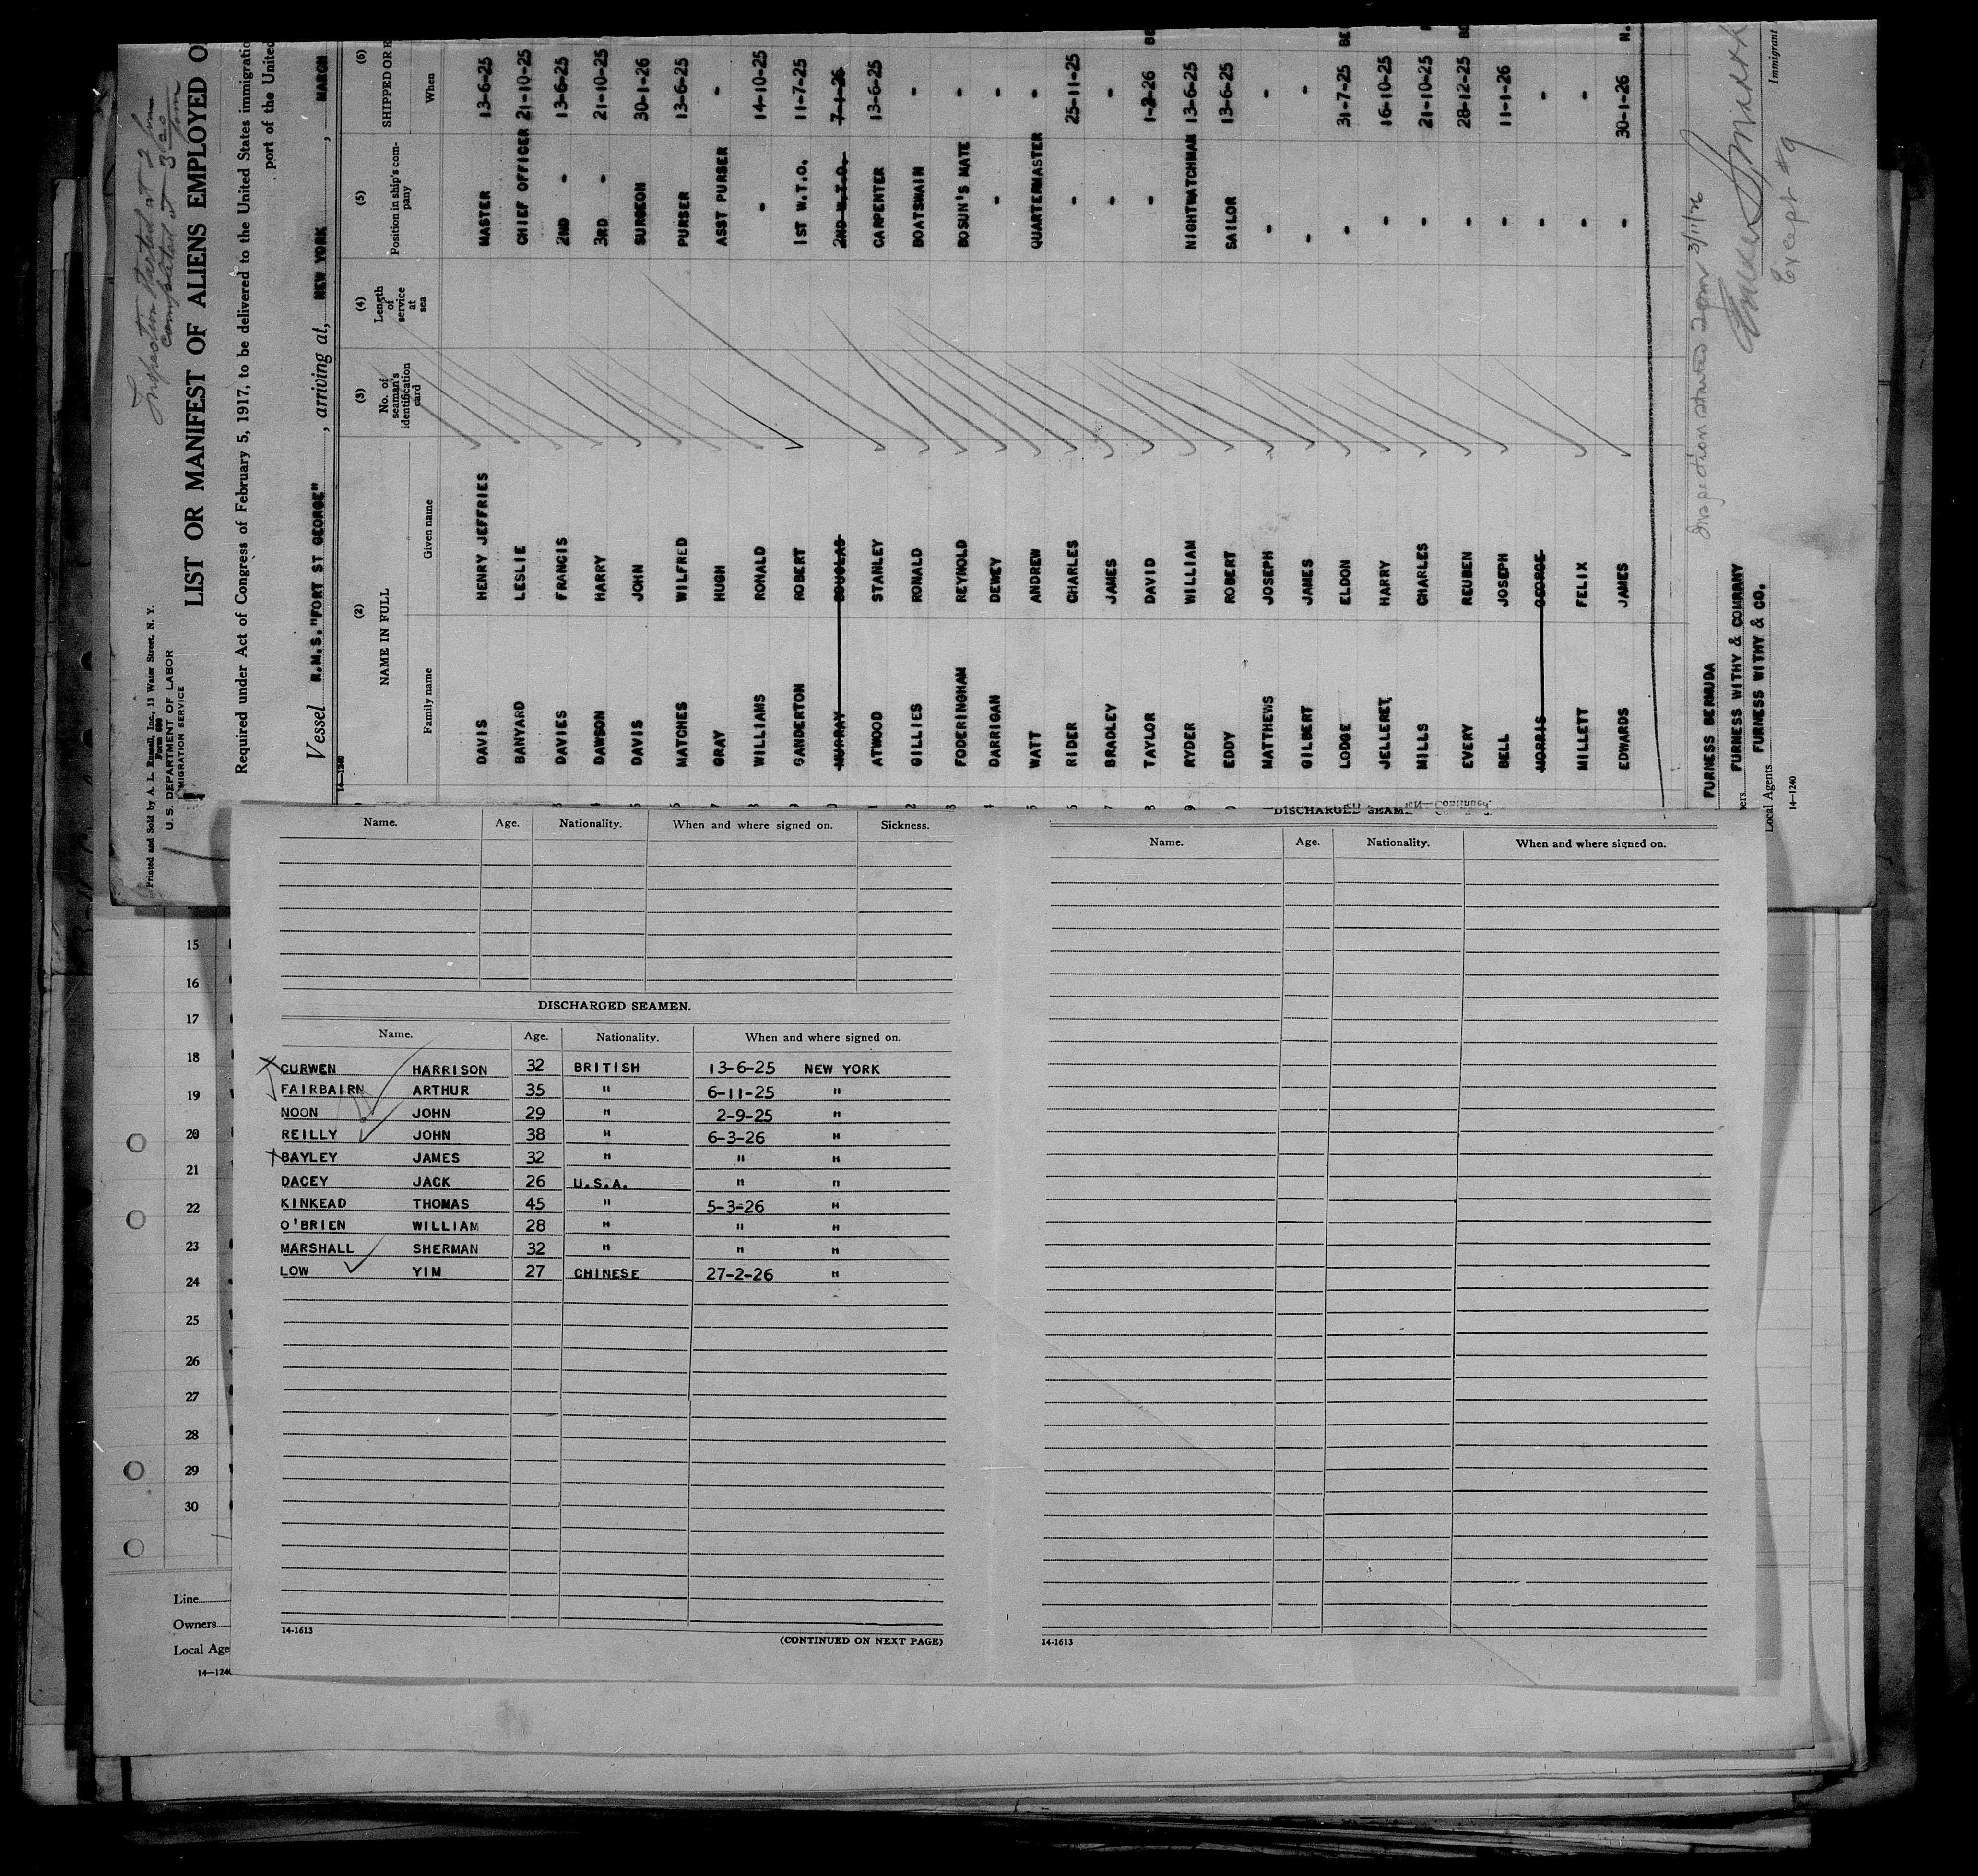 Inspection started at 2 pm
completed at 3 20 pm
Printed and Sold by A. L. Russell, Inc., 13 Water Street, N. Y.
Form 680
U. S. DEPARTMENT OF LABOR
IMMIGRATION SERVICE
LIST OR MANIFEST OF ALIENS EMPLOYED O
Required under Act of Congress of February 5, 1917, to be delivered to the United States immigratio
port of the United
Vessel R.M.S. "FORT ST GEORGE", arriving at, NEW YORK, MARCH
14—1240
(2) (3) (4) (5) (6)
NAME IN FULL No. of seaman's identification card Length of service at sea Position in ship's company SHIPPED OR E
Family name Given name When
DAVIS HENRY JEFFRIES MASTER 13-6-25
BANYARD LESLIE CHIEF OFFICER 21-10-25
DAVIES FRANCIS 2ND - 13-6-25
DAWSON HARRY 3RD - 21-10-25
DAVIS JOHN SURGEON 30-1-26
MATCHES WILFRED PURSER 13-6-25
GRAY HUGH ASST PURSER -
WILLIAMS RONALD - 14-10-25
SANDERTON ROBERT 1ST W.T.O. 11-7-25
MURRAY DOUGLAS 2ND W.T.O. 7-1-26
ATWOOD STANLEY CARPENTER 13-6-25
GILLIES RONALD BOATSWAIN -
FODERINGHAM REYNOLD BOSUN'S MATE -
DARRIGAN DEWEY - -
WATT ANDREW QUARTERMASTER -
RIDER CHARLES - 25-11-25
BRADLEY JAMES - -
TAYLOR DAVID - 1-2-26 BE
RYDER WILLIAM NIGHTWATCHMAN 13-6-25
EDDY ROBERT SAILOR 13-6-25
MATTHEWS JOSEPH - -
GILBERT JAMES - -
LODGE ELDON - 31-7-25 BE
JELLERET HARRY - 16-10-25
MILLS CHARLES - 21-10-25
EVERY REUBEN - 28-12-25 BE
BELL JOSEPH - 11-1-26
MORRIS GEORGE - -
MILLETT FELIX - -
EDWARDS JAMES - 30-1-26 N.
Inspection started 2 pm 3/11/26
FURNESS BERMUDA
ners FURNESS WITHY & COMPANY
Local Agents FURNESS WITHY & CO.
Immigrant
Except #9
14—1240
Name. Age. Nationality. When and where signed on. Sickness.
DISCHARGED SEAMEN.
Name. Age. Nationality. When and where signed on.
CURWEN HARRISON 32 BRITISH 13-6-25 NEW YORK
FAIRBAIRN ARTHUR 35 " 6-11-25 "
NOON JOHN 29 " 2-9-25 "
REILLY JOHN 38 " 6-3-26 "
BAYLEY JAMES 32 " " "
DACEY JACK 26 U.S.A. " "
KINKEAD THOMAS 45 " 5-3-26 "
O'BRIEN WILLIAM 28 " " "
MARSHALL SHERMAN 32 " " "
LOW YIM 27 CHINESE 27-2-26 "
14-1613
(CONTINUED ON NEXT PAGE)
DISCHARGED SEAMEN—Continued.
Name. Age. Nationality. When and where signed on.
14-1613
15
16
17
18
19
20
21
22
23
24
25
26
27
28
29
30
Line
Owners
Local Age
14—1240